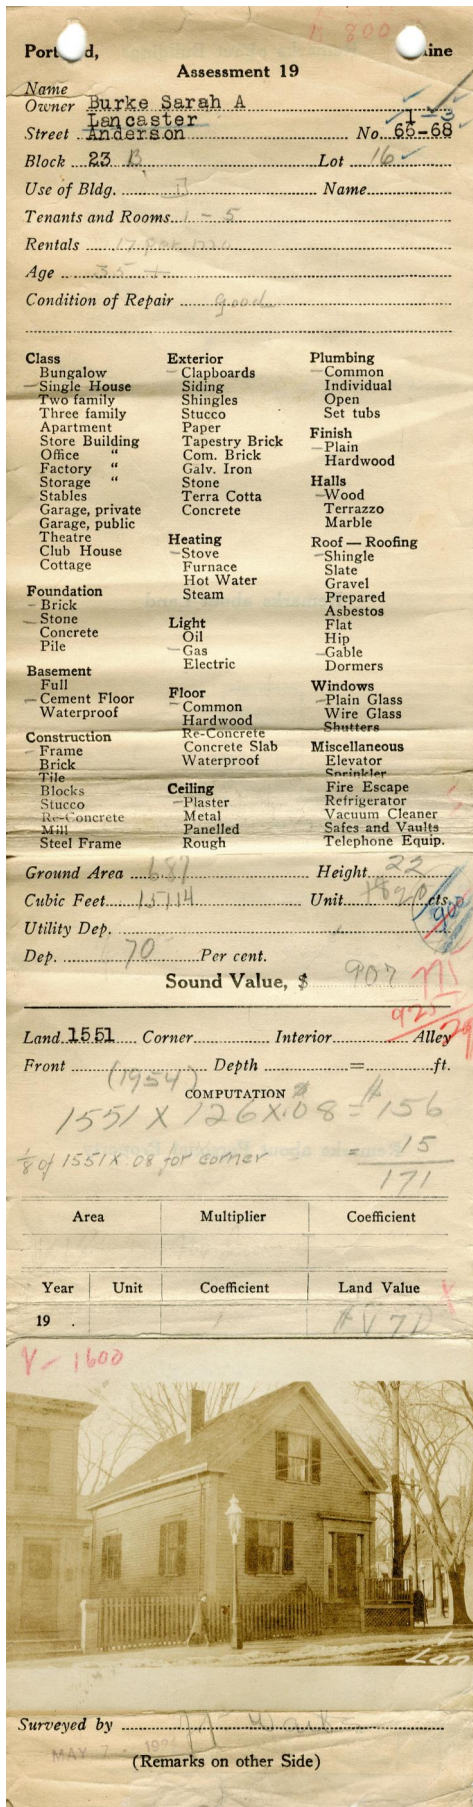 800
Port nd, ine
Assessment 19
Name
Owner Burke Sarah A
Lancaster 1-3
Street Anderson No. 66-68
Block 23 B Lot 16
Use of Bldg. Name
Tenants and Rooms 1 - 5
Rentals 17 per mo
Age 35 +
Condition of Repair good
Class
Bungalow
Single House
Two family
Three family
Apartment
Store Building
Office "
Factory "
Storage "
Stables
Garage, private
Garage, public
Theatre
Club House
Cottage
Foundation
Brick
Stone
Concrete
Pile
Basement
Full
Cement Floor
Waterproof
Construction
Frame
Brick
Tile
Blocks
Stucco
Re-Concrete
Mill
Steel Frame
Exterior
Clapboards
Siding
Shingles
Stucco
Paper
Tapestry Brick
Com. Brick
Galv. Iron
Stone
Terra Cotta
Concrete
Heating
Stove
Furnace
Hot Water
Steam
Light
Oil
Gas
Electric
Floor
Common
Hardwood
Re-Concrete
Concrete Slab
Waterproof
Ceiling
Plaster
Metal
Panelled
Rough
Plumbing
Common
Individual
Open
Set tubs
Finish
Plain
Hardwood
Halls
Wood
Terrazzo
Marble
Roof — Roofing
Shingle
Slate
Gravel
Prepared
Asbestos
Flat
Hip
Gable
Dormers
Windows
Plain Glass
Wire Glass
Shutters
Miscellaneous
Elevator
Sprinkler
Fire Escape
Refrigerator
Vacuum Cleaner
Safes and Vaults
Telephone Equip.
Ground Area 687 Height 22
Cubic Feet 15114 Unit cts.
900
Utility Dep.
Dep. 70 Per cent.
Sound Value, $ 907
925
Land 1551 Corner Interior Alley
Front Depth = ft.
(1954)
COMPUTATION
1551 X 126 X .08 = $156
1/8 of 1551 X .08 for corner = 15
171
Area Multiplier Coefficient
Year Unit Coefficient Land Value
19 .
V - 1600
Surveyed by
MAY 7
(Remarks on other Side)